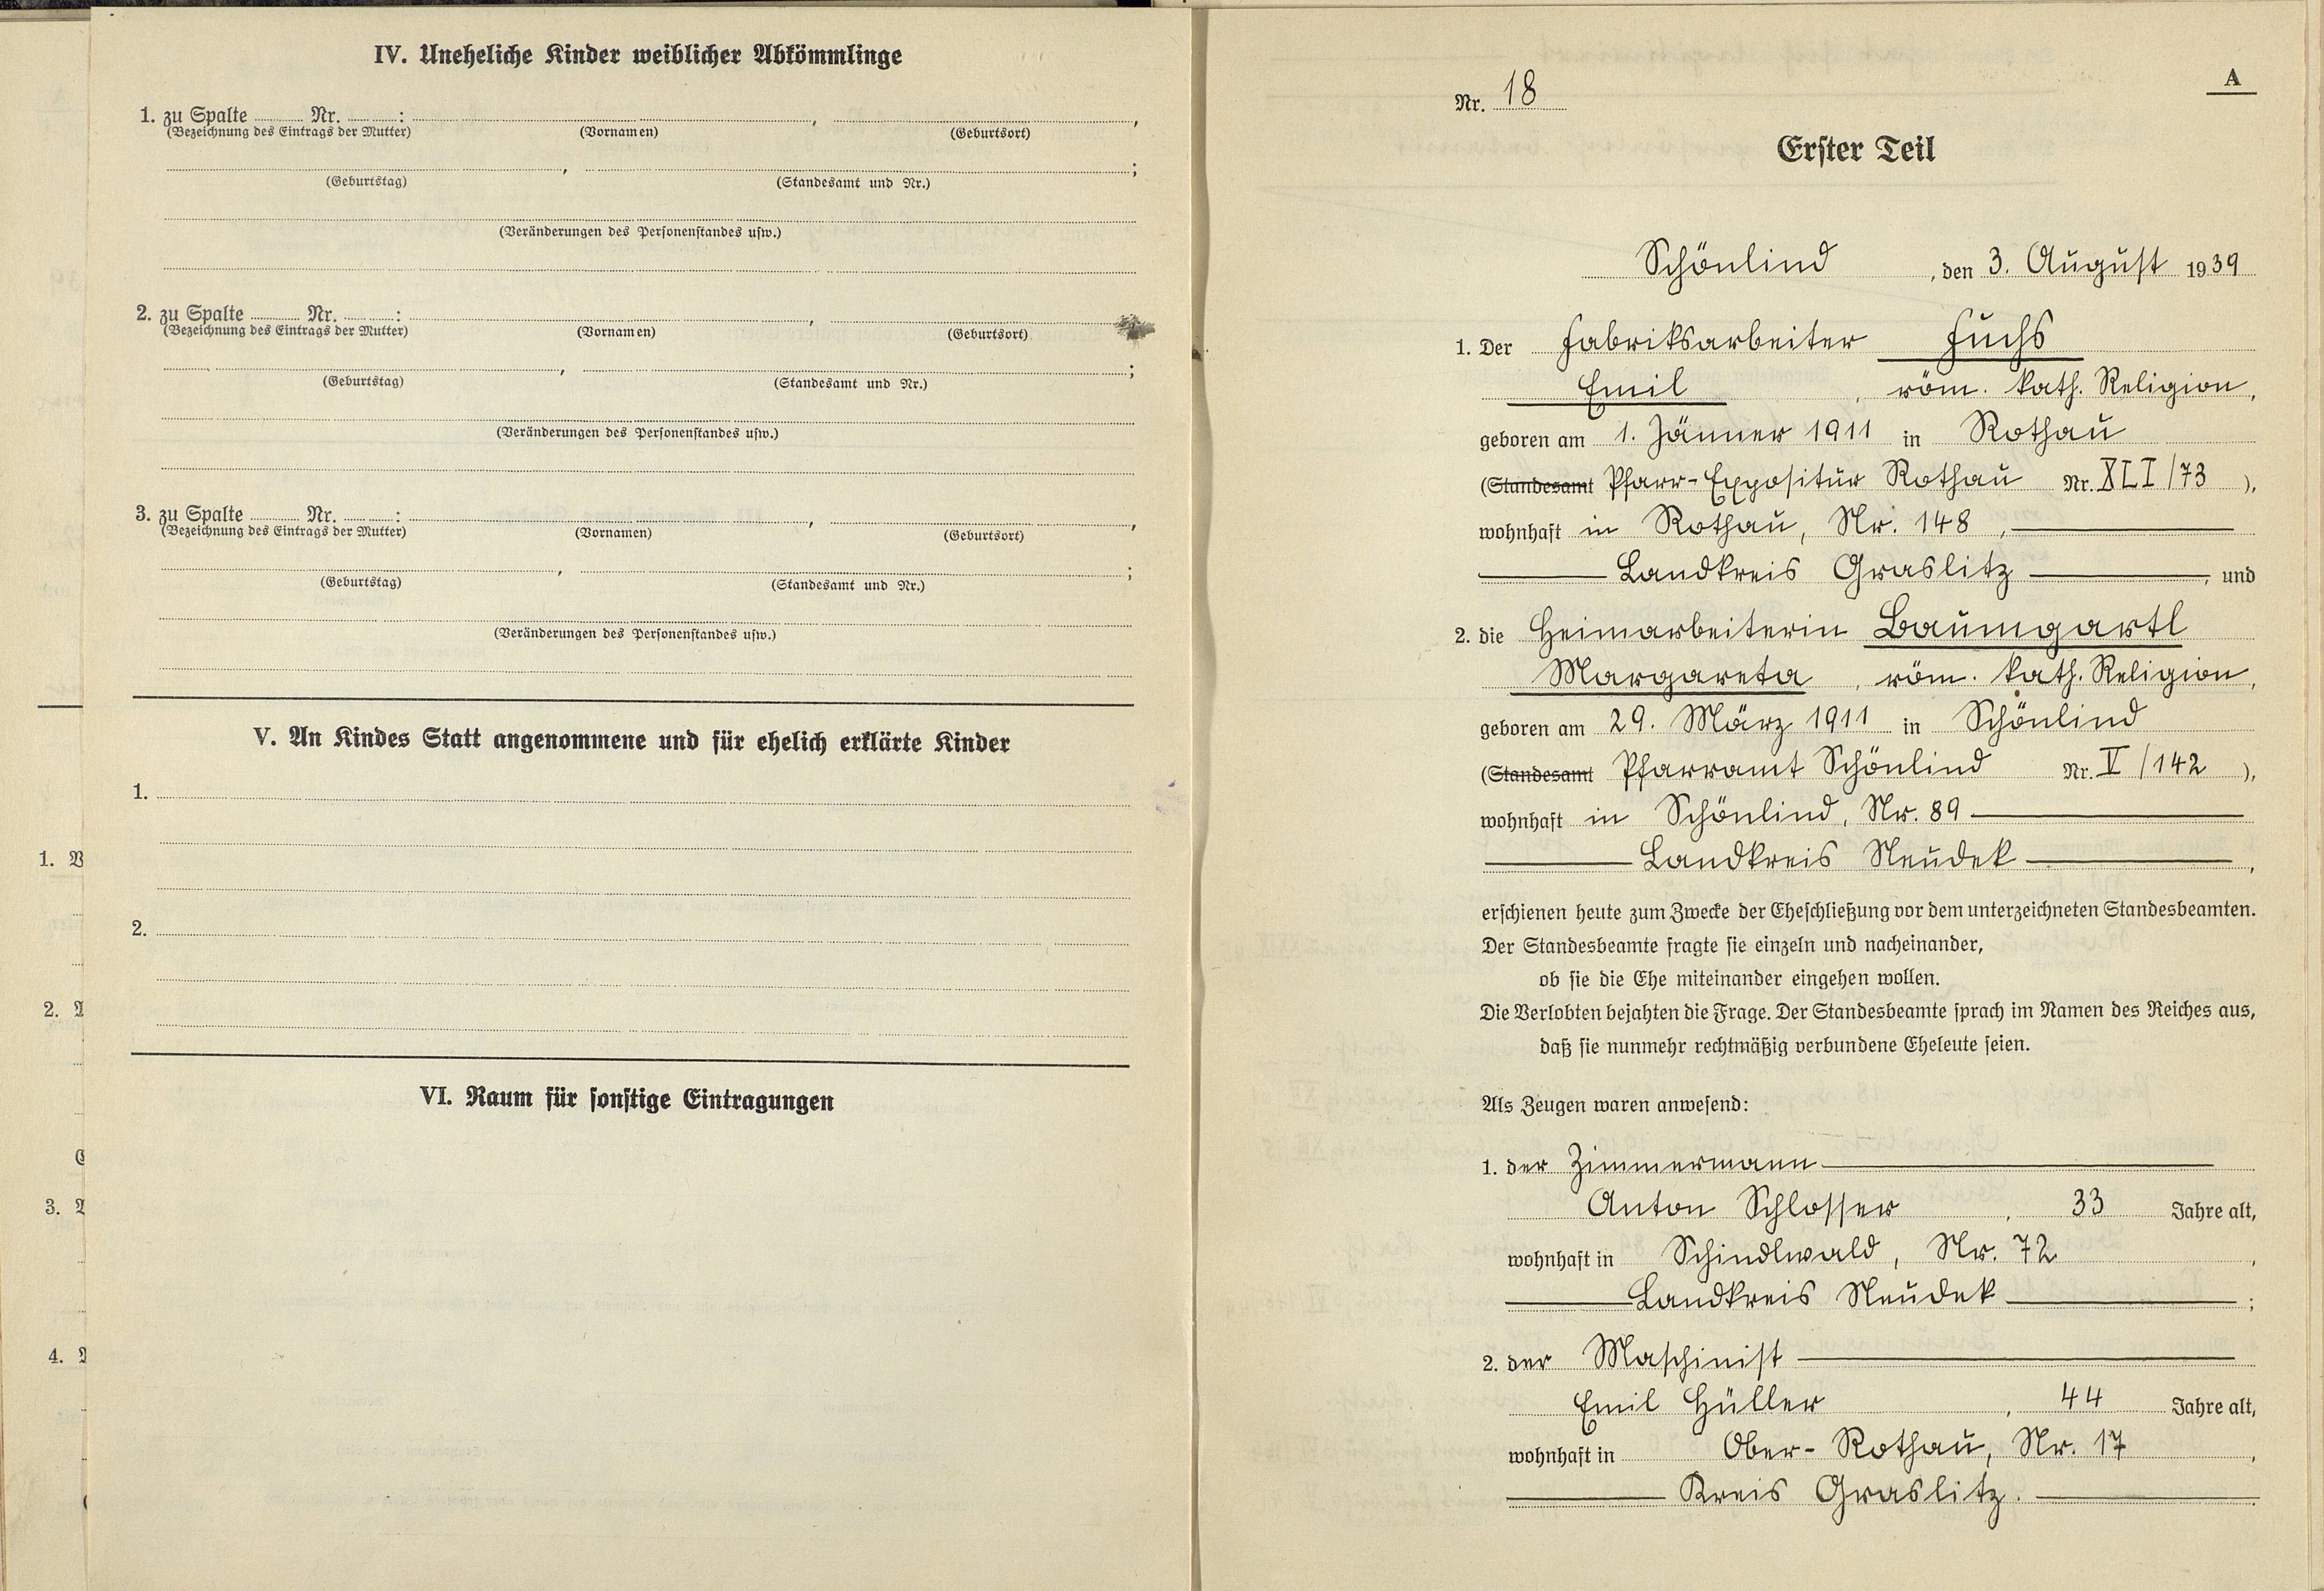 IV. Uneheliche Kinder weiblicher Abkömmlinge
1. zu Spalte Nr. : , ,
(Bezeichnung des Eintrags der Mutter) (Vornamen) (Geburtsort)
, ;
(Geburtstag) (Standesamt und Nr.)
(Veränderungen des Personenstandes usw.)
2. zu Spalte Nr. : ,
(Bezeichnung des Eintrags der Mutter) (Vornamen) (Geburtsort)
, ;
(Geburtstag) (Standesamt und Nr.)
(Veränderungen des Personenstandes usw.)
3. zu Spalte Nr. : , ,
(Bezeichnung des Eintrags der Mutter) (Vornamen) (Geburtsort)
, ;
(Geburtstag) (Standesamt und Nr.)
(Veränderungen des Personenstandes usw.)
V. An Kindes Statt angenommene und für ehelich erklärte Kinder
1.
2.
VI. Raum für sonstige Eintragungen
1.
2.
3.
4.
A
Nr. 18
Erster Teil
Schönlind, den 3. August 1939
1. Der Fabriksarbeiter Fuchs
Emil, röm. kath. Religion,
geboren am 1. Jänner 1911 in Rothau
(Standesamt Pfarr-Expositur Rothau Nr. XLI/73),
wohnhaft in Rothau, Nr. 148,
Landkreis Graslitz, und
2. die Heimarbeiterin Baumgartl
Margareta, röm. kath. Religion,
geboren am 29. März 1911 in Schönlind
(Standesamt Pfarramt Schönlind Nr. V/142),
wohnhaft in Schönlind, Nr. 89
Landkreis Neudek,
erschienen heute zum Zwecke der Eheschließung vor dem unterzeichneten Standesbeamten.
Der Standesbeamte fragte sie einzeln und nacheinander,
ob sie die Ehe miteinander eingehen wollen.
Die Verlobten bejahten die Frage. Der Standesbeamte sprach im Namen des Reiches aus,
daß sie nunmehr rechtmäßig verbundene Eheleute seien.
Als Zeugen waren anwesend:
1. der Zimmermann
Anton Schlosser, 33 Jahre alt,
wohnhaft in Schindlwald, Nr. 72,
Landkreis Neudek;
2. der Maschinist
Emil Hüller, 44 Jahre alt,
wohnhaft in Ober-Rothau, Nr. 17,
Kreis Graslitz.